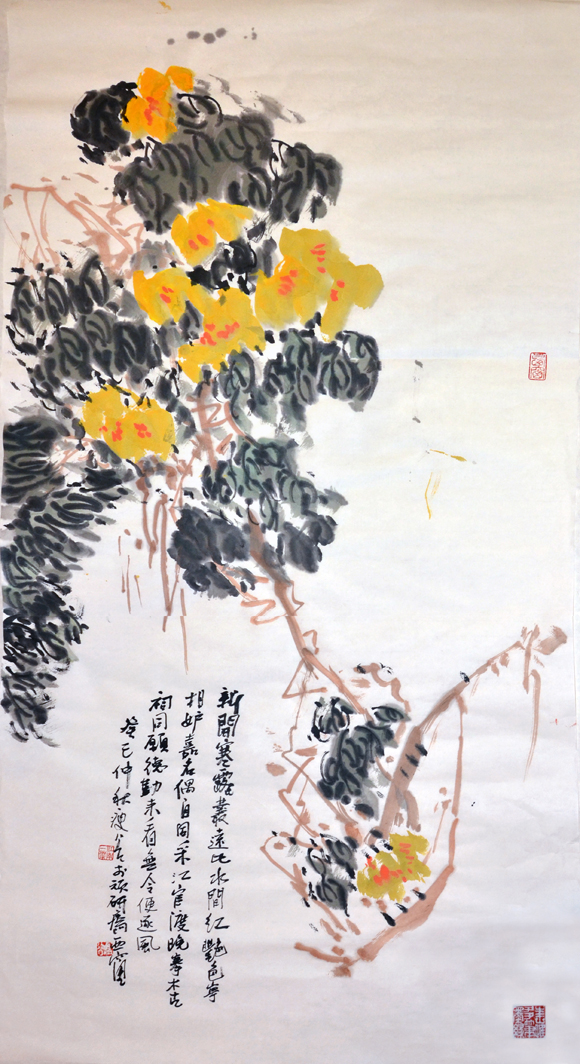 新開寒露叢遠比水間紅艷色寧
相妒嘉名偶自同采江官渡晚搴木古
祠同願德勤来看無令便逐風
癸巳仲秋瘦於研齋西窗